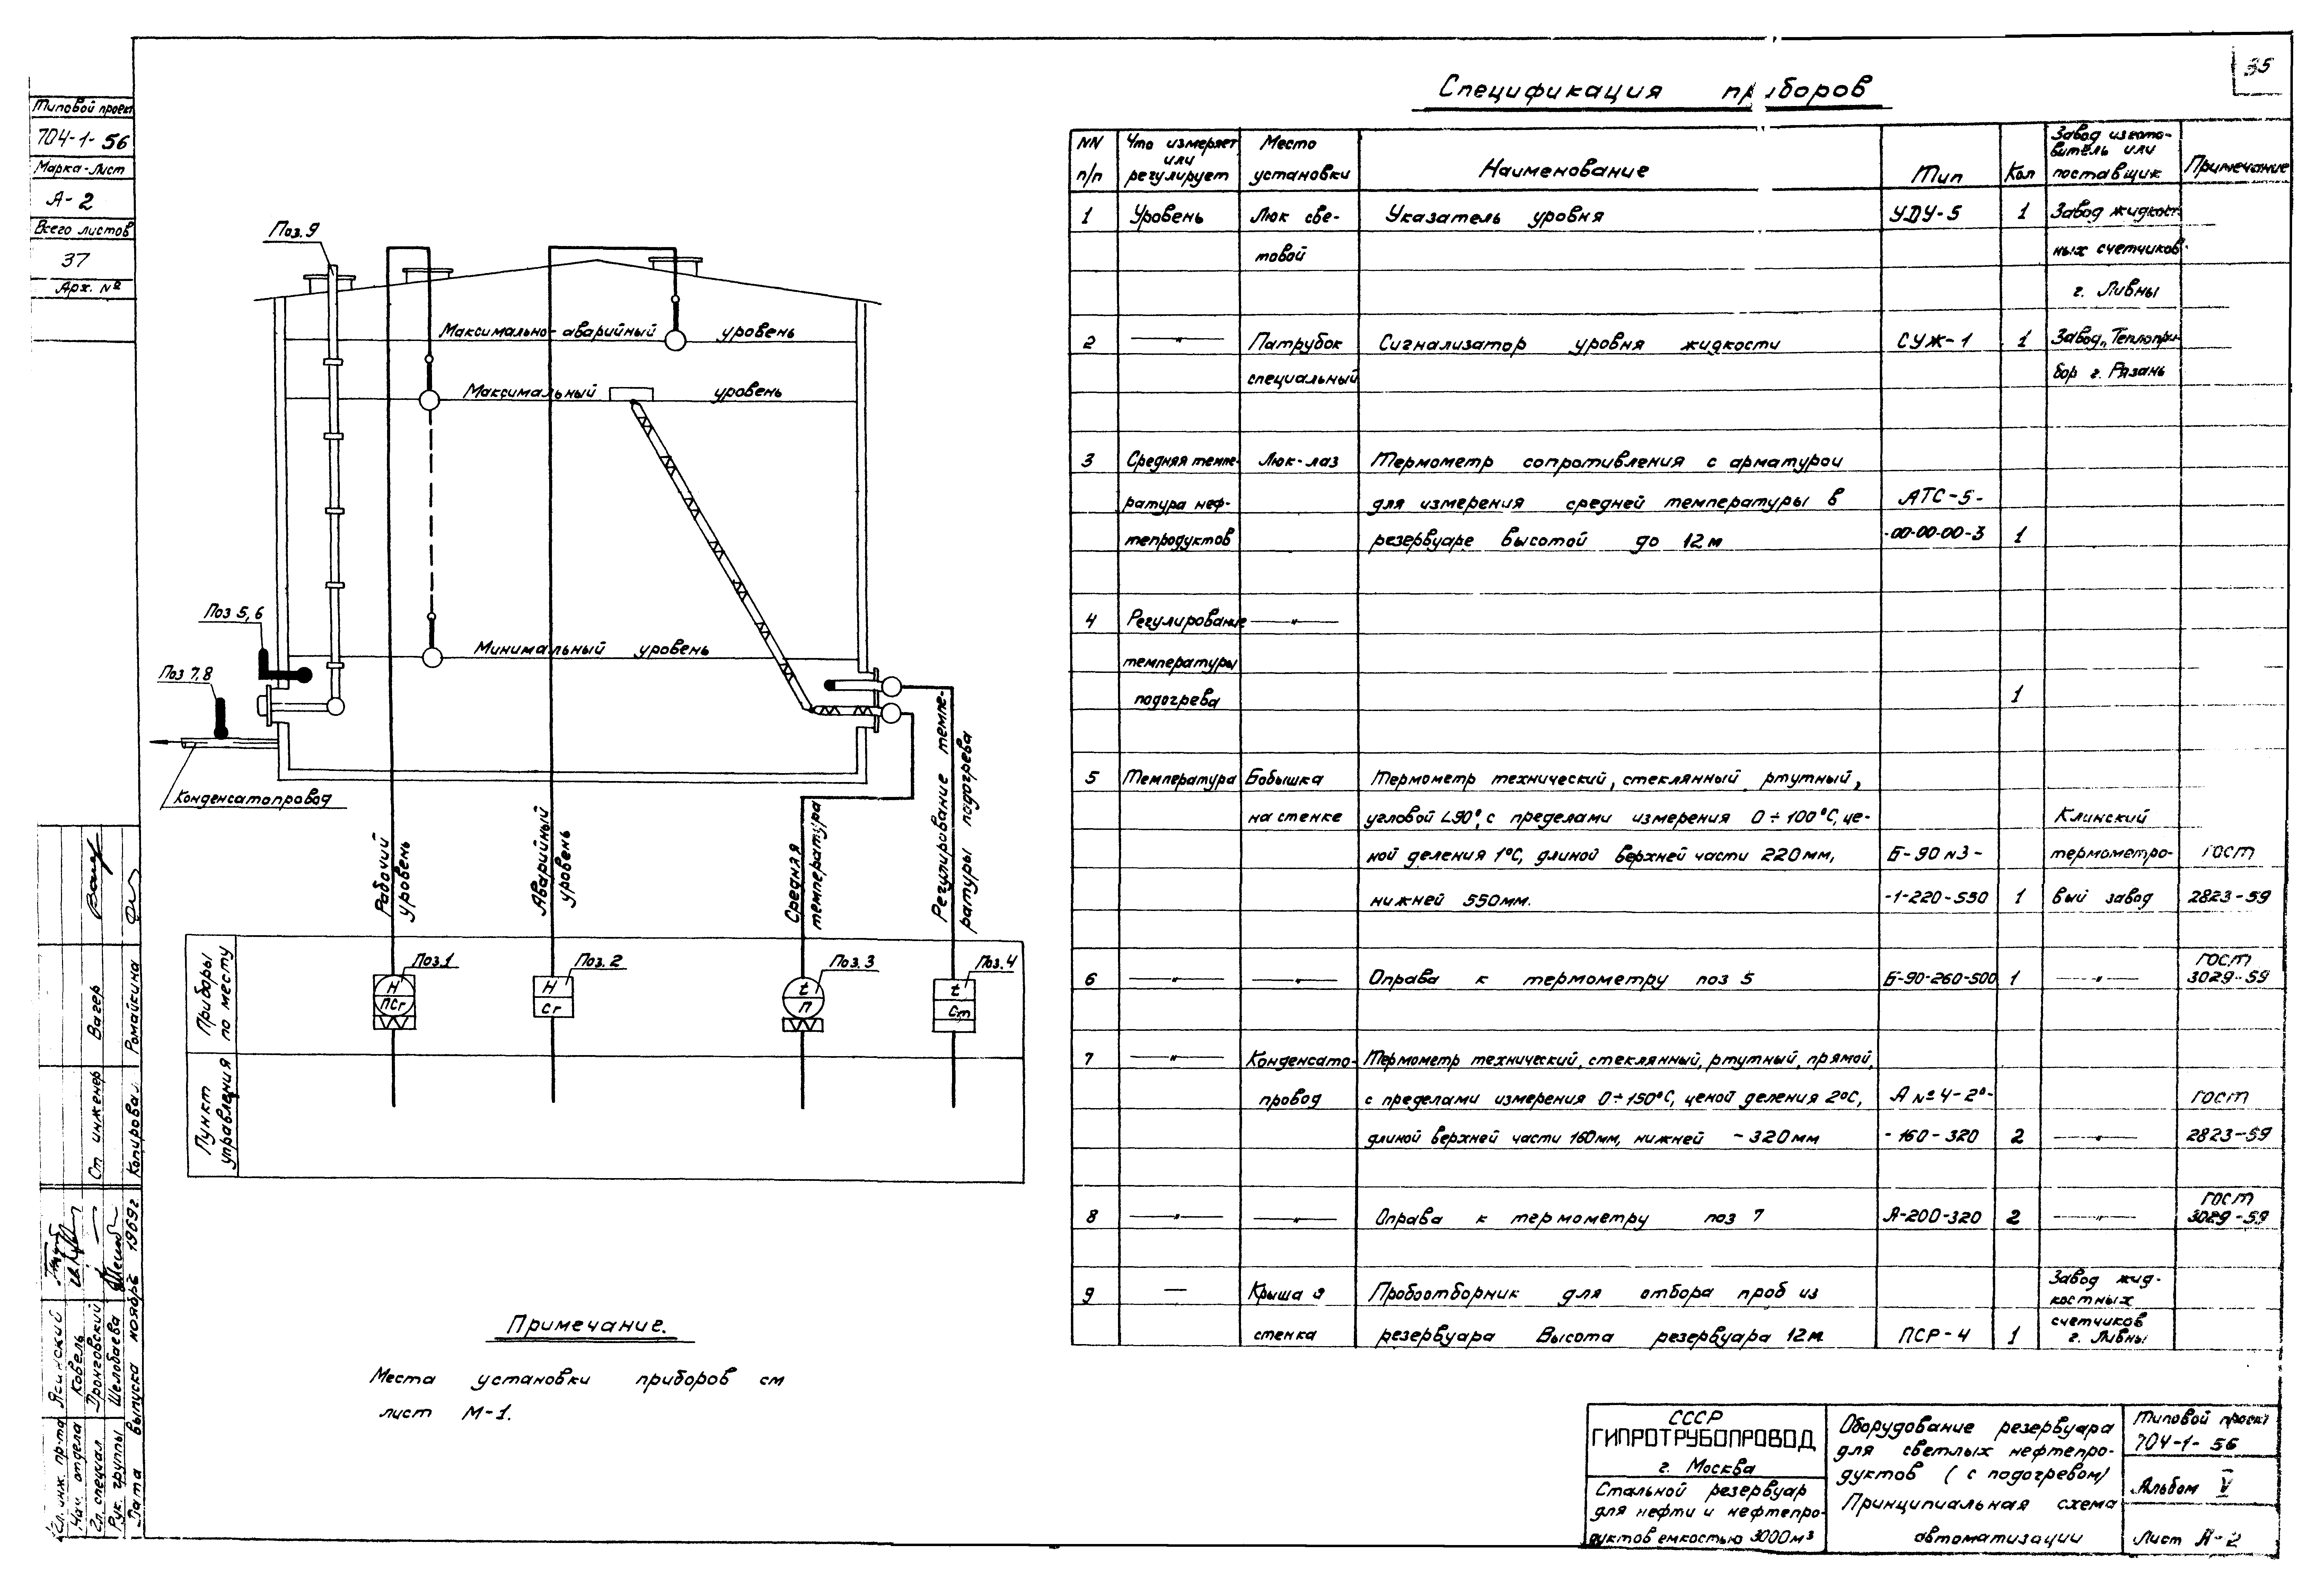 35
Типовой проект
704-1-56
Марка-Лист
А-2
Всего листов
37
Арх. №
Поз. 9
Максимально-аварийный уровень
Максимальный уровень
Минимальный уровень
Поз 5,6
Поз 7,8
Конденсатопровод
Рабочий
уровень
Аварийный
уровень
Средняя
температура
Регулирование темпе-
ратуры подогрева
Приборы
по месту
Поз.1
Н
ПСг
Поз. 2
Н
Сг
Поз. 3
t
П
Поз. 4
t
Ст
Пункт
управления
Примечание.
Места установки приборов см
лист М-1.
Спецификация приборов
NN п/п
Что измеряет или регулирует
Место установки
Наименование
Тип
Кол
Завод изгото-
витель или
поставщик
Примечание
1 Уровень Люк све- Указатель уровня УДУ-5 1 Завод жидкост-
товой ных счетчиков
г. Ливны
2 —"— Патрубок Сигнализатор уровня жидкости СУЖ-1 1 Завод „Теплопри-
специальный бор г. Рязань
3 Средняя темпе- Люк-лаз Термометр сопротивления с арматурой
ратура неф- для измерения средней температуры в АТС-5-
тепродуктов резервуаре высотой до 12м -00-00-00-3 1
4 Регулирование —"—
температуры
подогрева 1
5 Температура Бобышка Термометр технический, стеклянный ртутный,
на стенке угловой ∠90°, с пределами измерения 0÷100°С, це- Клинский
ной деления 1°С, длиной верхней части 220мм, Б-90 N3- термометро- ГОСТ
нижней 550мм. -1-220-550 1 вый завод 2823-59
6 —"— —"— Оправа к термометру поз 5 Б-90-260-500 1 —"— ГОСТ
3029-59
7 —"— Конденсато- Термометр технический, стеклянный, ртутный, прямой,
провод с пределами измерения 0÷150°С, ценой деления 2°С, А № 4-2°- ГОСТ
длиной верхней части 160мм, нижней -320мм -160-320 2 —"— 2823-59
8 —"— —"— Оправа к термометру поз 7 А-200-320 2 —"— ГОСТ
3029-59
9 — Крыша и Пробоотборник для отбора проб из Завод жид-
костных
стенка резервуара Высота резервуара 12м. ПСР-4 1 счетчиков
г. Ливны
СССР
ГИПРОТРУБОПРОВОД
г. Москва
Стальной резервуар
для нефти и нефтепро-
дуктов емкостью 3000м³
Оборудование резервуара
для светлых нефтепро-
дуктов (с подогревом)
Принципиальная схема
автоматизации
Типовой проект
704-1-56
Альбом V
Лист А-2
Гл. инж. пр-та Ясинский
Нач. отдела Кобель
Гл. специал Дронговский
Рук. группы Шелобаева
Дата выпуска ноябрь 1969г.
Ст инженер Вагер
Копировал Ромайкина